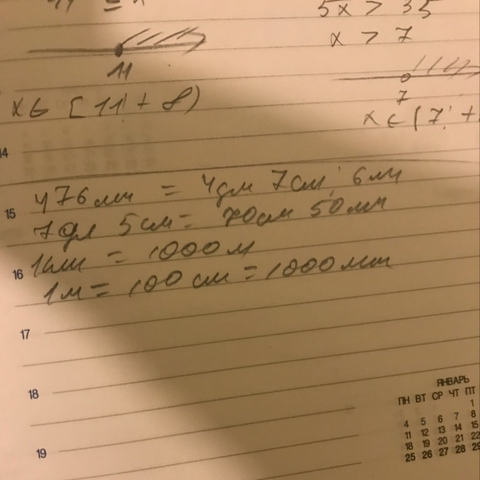 5x > 35
x > 7
11
7
x ∈ [11; + 8)
x ∈ (7; +
14
15 476мм = 4дм 7см; 6мм
7дм 5см = 70см 50мм
16 1км = 1000м
1м = 100см = 1000мм
17
18
19
ЯНВАРЬ
ПН ВТ СР ЧТ ПТ
1
4 5 6 7 8
11 12 13 14 15
18 19 20 21 22
25 26 27 28 29